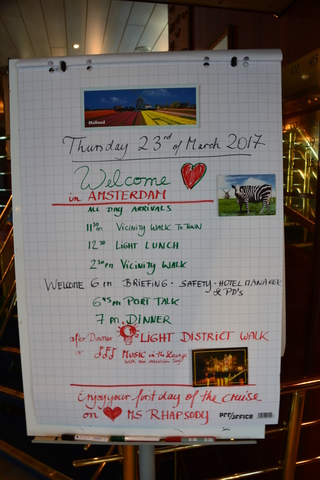 Holland
Thursday 23rd of March 2017
Welcome
in AMSTERDAM
ALL DAY ARRIVALS
11 30 am VICINITY WALK TO TOWN
12 30 LIGHT LUNCH
2 30 pm VICINITY WALK
WELCOME 6 pm BRIEFING - SAFETY - HOTEL MANAGER
& PD's
6 45 pm PORT TALK
7 pm DINNER
after Dinner LIGHT DISTRICT WALK
or MUSIC in the Lounge
Enjoy your first day of the cruise
on MS RHAPSODY
PRO/OFFICE